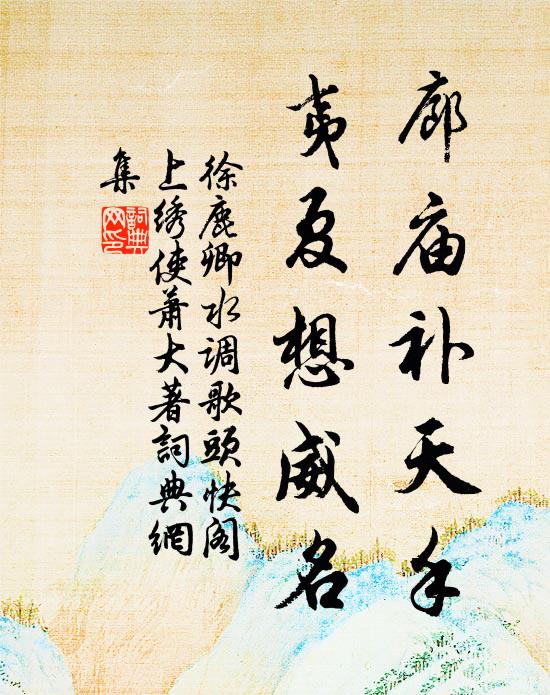 廊庙补天手
夷夏想威名
徐鹿卿水调歌頭快阁
上绣使萧大著詞典網
集
詞典
网印